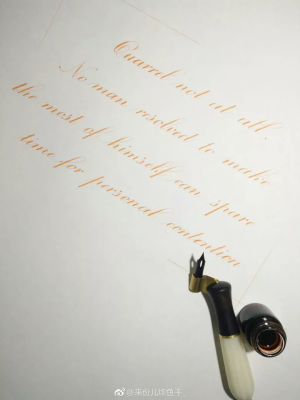 Quarrel not at all.
No man resolved to make
the most of himself can spare
time for personal contention
@来份儿炸鱼子